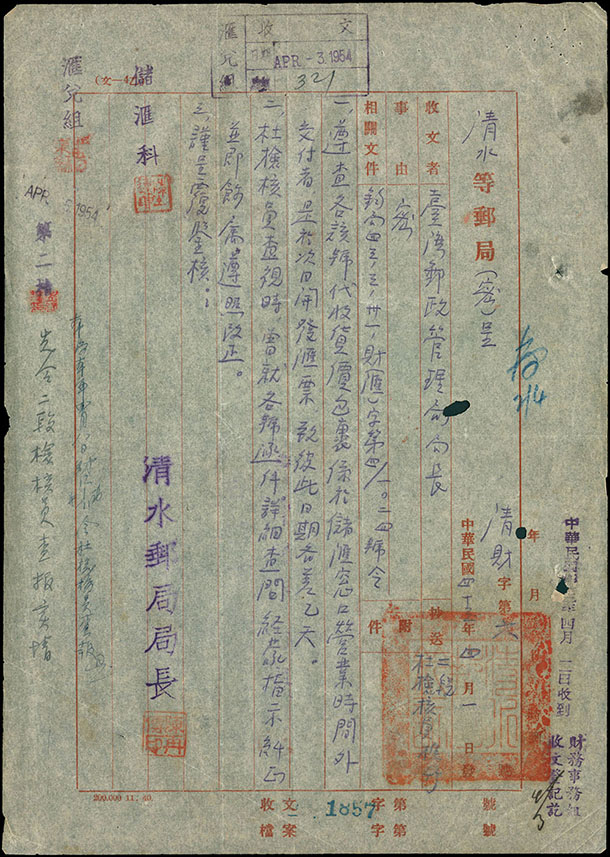 滙兌組
收文
日期
APR - 3.1954
321
(文—4)
中華民國
年四月二日收到
財務事務組
收文登記訖
清水等郵局(密)呈
清財字第六
號
年
月
收文者
臺灣郵政管理局局長
中華民國四十三年四月一日發
事由
密
相關文件
附件
抄送
二段
杜檢核員
鈞局四三、三、卅一、財滙(一)字第四/一〇二四號令
一、遵查各該號代收貨價包裹係於儲滙窓口營業時間外
交付者是於次日開發滙票致彼此日期各差乙天。
二、杜檢核員查視時曾就各號函件詳細查問經蒙指示糾正
並即飭屬遵照改正。
三、謹呈覆鑒核：
清水郵局局長
儲滙科
滙兌組
APR
1954
第二
先令二段檢核員查报
200,000 11. 40.
收文
檔案
1857
字第
字第
號
號